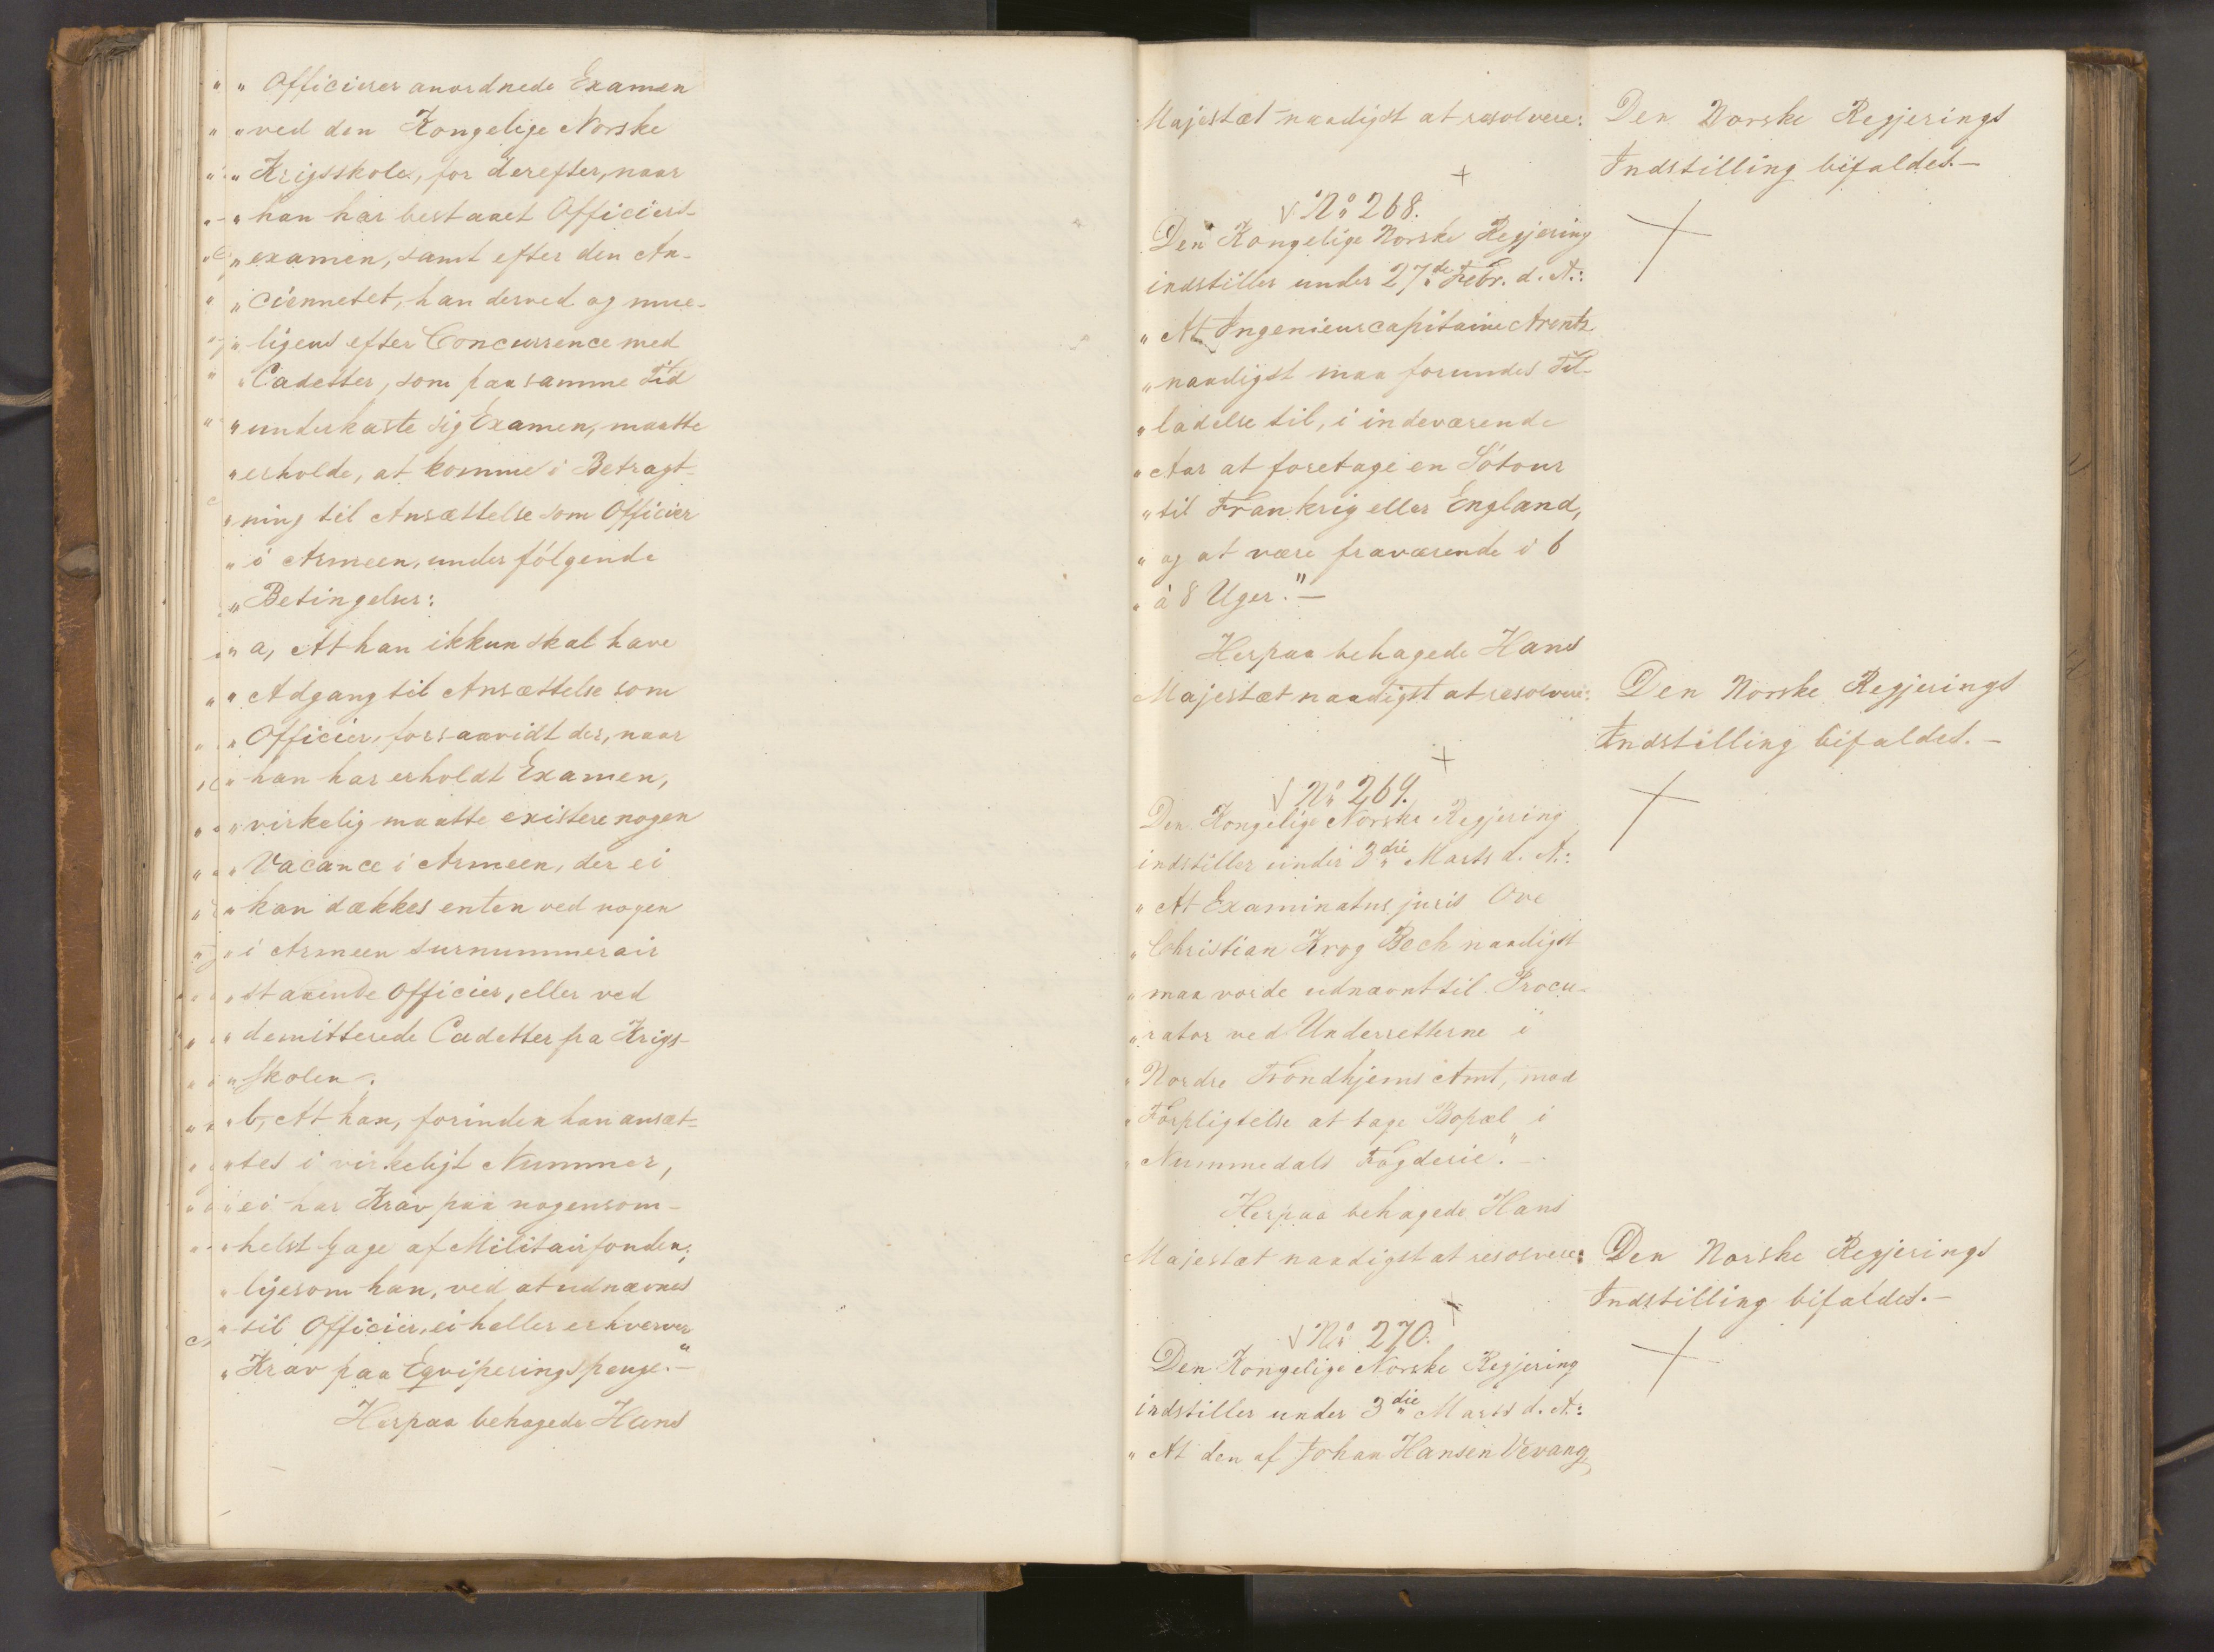 " " Officierer anordnede Examen
" " ved den Kongelige Norske
" " Krigsskole, for derefter, naar
" " han har bestaaet Officiers-
" " examen, samt efter den An-
" " ciennetet, han derved og mue-
" " ligens efter Concurrence med
" " Cadetter, som paa samme Tid
" " underkaste sig Examen, maatte
" erholde, at komme i Betragt-
" ning til Ansættelse som Officier
" i Armeen, under følgende
" Betingelser:
" a, At han ikkun skal have
" " Adgang til Ansættelse som
" " Officier, forsaavidt der, naar
" " han har erholdt Examen,
" " virkelig maatte existere nogen
" " Vacance i Armeen, der ei
" " kan dækkes enten ved nogen
" " i Armeen surnummerair
" " staaende Officier, eller ved
" " demitterede Cadetter fra Krigs-
" " skolen.
" " b, At han, forinden han ansæt-
" " tes i virkeligt Nummer,
" " ei har Krav paa nogensom-
" " helst Gage af Militairfonden;
" ligesom han, ved at udnævnes
" til Officier, ei heller erhverver
" Krav paa Eqviperingspenge." —
Herpaa behagede Hans
Majestæt naadigst at resolvere:
Den Norske Regjerings
Indstilling bifaldes. —
No 268.
Den Kongelige Norske Regjering
indstiller under 27de Febr. d. A.:
" At Ingenieurcapitaine Arentz
" naadigst maa forundes Til-
" ladelse til, i indeværende
" Aar at foretage en Søtour
" til Frankrig eller England,
" og at være fraværende i 6
" à 8 Uger." —
Herpaa behagede Hans
Majestæt naadigst at resolvere:
Den Norske Regjerings
Indstilling bifaldes. —
No 269.
Den Kongelige Norske Regjering
indstiller under 3die Marts d. A.:
" At Examinatus juris Ove
" Christian Krog Bech naadigst
" maa vorde udnævnt til Procu-
" rator ved Underretterne i
" Nordre Trondhjems Amt, mod
" Forpligtelse at tage Bopæl i
" Nummedals Fogderie." —
Herpaa behagede Hans
Majestæt naadigst at resolvere:
Den Norske Regjerings
Indstilling bifaldes. —
No 270.
Den Kongelige Norske Regjering
indstiller under 3die Marts d. A.:
" At den af Johan Hansen Vevang